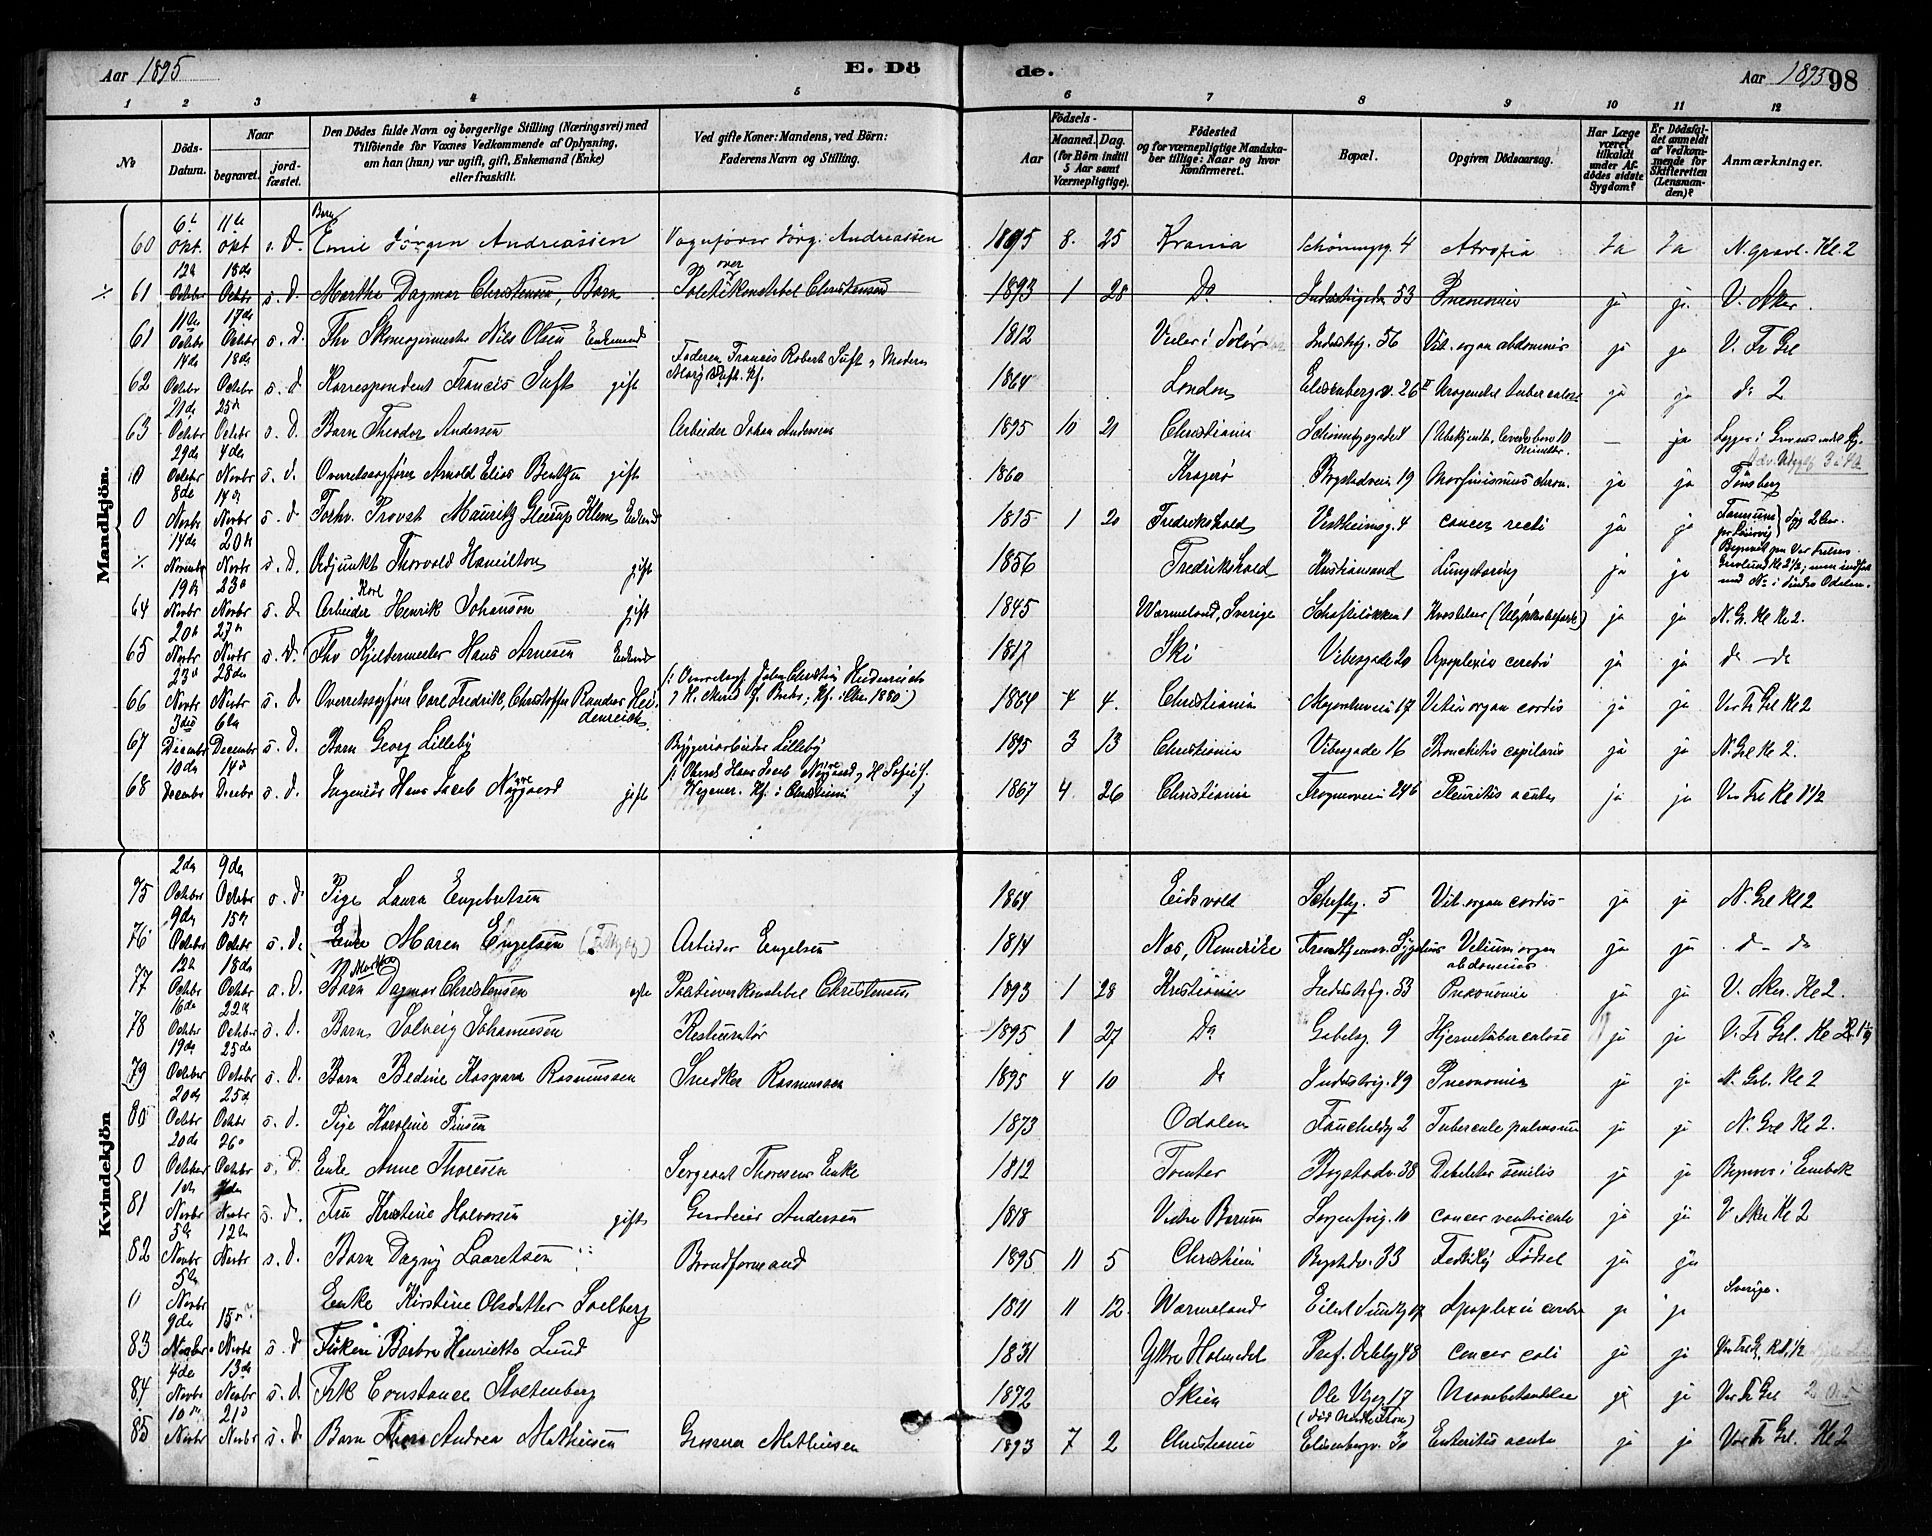 Aar 1895 E. Dö de. Aar 1895 98
1 2 3 4 5 6 7 8 9 10 11 12
No
Döds-Datum.
Naar begravet. jord-fæstet.
Den Dödes fulde Navn og borgerlige Stilling (Næringsvei) med Tilföiende for Voxnes Vedkommende af Oplysning, om han (hun) var ugift, gift, Enkemand (Enke) eller fraskilt.
Ved gifte Koner: Mandens, ved Börn: Faderens Navn og Stilling.
Födsels- Aar Maaned. Dag. (for Börn indtil 5 Aar samt Værnepligtige).
Födested og for værnepligtige Mandskaber tillige: Naar og hvor konfirmeret.
Bopæl.
Opgiven Dödsaarsag.
Har Læge været tilkaldt under Afdödes sidste Sygdom?
Er Dödsfaldet anmeldt af Vedkommende for Skifteretten (Lensmanden)?
Anmærkninger.
Mandkjön.
60 6te Okt. 11te Okt s. D. Barn Emil Jörgen Andreassen Vognfører Jörg. Andreassen 1895 8. 25 Krania Schöningsg. 4 Atrofia Ja Ja N. Gravl. Kl. 2
61 12te October 18de Octbr s. D. Marthe Dagmar Christensen, Barn Politioverkonstabel Christensen 1893 1 28 Do Industrigaden 53 Pneumonie ja ja V. Aker.
61 11te Octobr 17de Octobr s. D. Fhv Skomagermester Nils Olsen Enkemand 1812 Vaaler i Solør Industrig. 56 Vit. organ abdominis ja ja V. Fr Grl
62 14de Octobr 18de Octobr s. d Korrespondent Francis Tuft gift Faderen Francis Robert Tuft, Moderen Mary Tuft. Kf. 1864 London Elisenbergv. 26 II tuberculose ja ja do 2
63 21de Octobr 25de Octobr s. D. Barn Theodor Andersen Arbeider Johan Andersen 1895 10 21 Christiania Schöningsgade 4 (Ubekjendt, levede bare 10 Minutter. — ja
0 29de Octobr 4de Novbr s. d. Overretssagfører Arnold Elias Bentzen gift 1860 Kragerø Bogstadvein 19 Morfinismus chron. ja ja Tönsberg
0 8de Novbr 14de Novbr s. d Forhv. Provst Mauritz Glerup Klem Enkemd 1815 1 20 Fredrikshald Vestheimsg. 4 cancer recti ja ja
14de Novembr 20de Novbr s. D. Adjunkt Thorvald Hamilton gift 1856 Fredrikshald Kristiansand Lungetæring ja ja Begravet paa Vor Frelsers Gravlund Kl 2 1/2;
64 19de Novbr 23de Novbr s. D Arbeider Karl Henrik Johanson gift 1845 Wærmeland, Sverige Schaftelökken 1 ja ja N. Gr. Kl 2.
65 20de Novbr 27de Novbr s. D. Fhv Kjeldermester Hans Arnesen Enkemd 1817 Ski Vibesgade 20 Apoplexia cerebri ja ja do — do
66 23de Novbr 28de Novbr s. D Overretssagfører Carl Fredrik Christoffer Randers Heidenreich 1864 4 4. Christiania Majorstuveien 17 Vitium organ cordis ja ja Vor Fr Grl Kl 2
67 3die December 6te December s. D. Barn Georg Lilleby Byggeriarbeider Lilleby 1895 3 13 Christiania Vibesgade 16 Bronchitis capilaris ja ja N. Grl Kl 2.
68 10de December 14de Decbr s. d. Ingeniör Hans Jacob Nygaard gift Oberst Hans Jacob Nygaard, H Sofie f. Wegener. Kf. i Christiania 1867 4 26 Christiania Frognervein 24b Pleuritis acuta ja ja Vor Fr Kl 1 1/2
Kvindekjön
75 2de October 9de October s. D. Pige Laura Engebretsen 1864 Eidsvold Schultzg. 5 Vit. organ cordis ja ja N. Grl Kl 2
76 9de October 15de Octobr s. D. Enke Maren Engelsen Arbeider Engelsen 1814 Nes, Romerike Vitium organ abdominis ja ja do — do
77 12te Octobr 18de Octobr s. D. Barn Martha Dagmar Christensen Politioverkonstabel Christensen 1893 1 28 Kristiania Industrig. 53 Pneumonia ja ja V. Aker. Kl 2.
78 16de October 22de October s. D. Barn Solveig Johannesen Restauratör 1895 1 27 Do Gabelsg 9 Hjernetuberculose ja ja V. Fr Grl. Kl 1 1/2
79 19de October 25de October s. D. Barn Bedine Kaspara Rasmussen Snedker Rasmussen 1895 4 10 Do Industrig. 49 Pneumonia ja ja N. Grl. Kl 2
80 20de October 25de Octobr s. d. Pige Karoline Finsen 1873 Odalen Fauchaldg 2 Tubercule pulmonum ja ja N. Grl Kl 2.
0 20de October 26de Octobr s. D. Enke Anne Thoresen Sergeant Thoresens Enke 1812 Tomter Bogstadv. 38 Debilitas senilis ja ja Begraves i Enebak
81 1ste Novbr 7de Novbr s. d. Fru Kristine Halvorsen gift Andersen 1818 Vestre Bærum Sorgenfrig. 10 cancer ventriculi ja ja V Aker Kl 2
82 5te Novbr 12te Novbr s. D. Barn Dagny Lauretsen Brandformand 1895 11 5 Christiania Bogstadv. 33 Fortidlig Födsel ja ja
0 5te Novbr Enke Kirstine Olsdatter Solberg 1811 11 12. Wærmeland Eilert Sundtsg 17 Apoplexia cerebri ja ja Sverige.
83 9de Novbr 15de Novbr s. D Fröken Barbra Henriette Lund 1831 Yttre Holmedal Prof. Dahlsg 48 cancer coli ja ja Vor Fr Gr, Kl. 1 1/2
84 4de Novbr 13de Novbr s. d Frk Constance Stoltenberg 1872 Skien Ole Vigsg 17 Mavebetændelse ja ja Vor Fr Grl
85 10de Novbr 21de Novbr s. D Barn Thora Andrea Mathiesen Grosserer Mathiesen 1893 7 2 Christiania Elisenbergv. 30 Enteritis acuta ja ja Vor Fr Grl. Kl 2